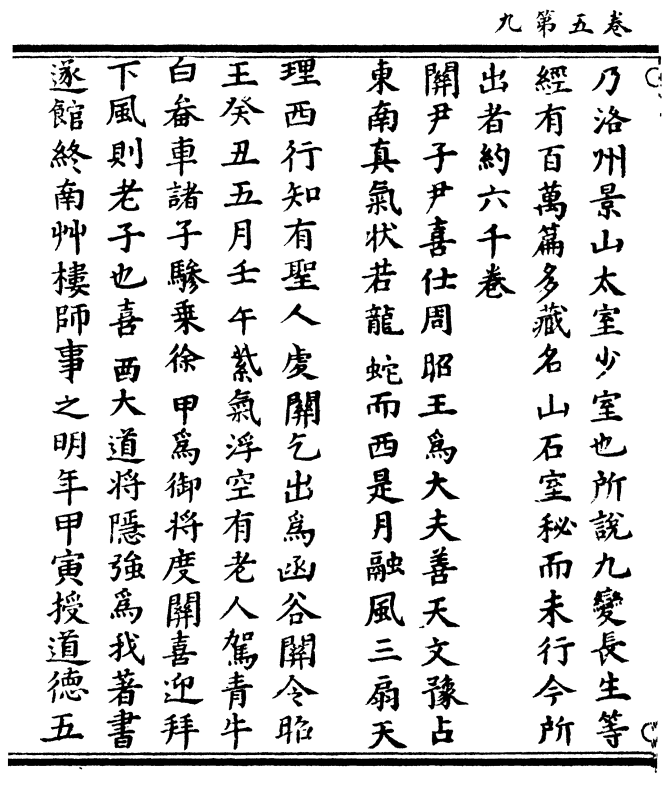 卷五第九
乃洛州景山太室少室也所說九變長生等
經有百萬篇多藏名山石室秘而未行今所
出者約六千卷
關尹子尹喜仕周昭王爲大夫善天文豫占
東南真氣状若龍蛇而西是月融風三扇天
理西行知有聖人度關乞出爲函谷關令昭
王癸丑五月壬午紫氣浮空有老人駕青牛
白輂車諸子驂乗徐甲爲御将度關喜迎拜
下風則老子也喜西大道将隱強爲我著書
遂館終南艸樓師事之明年甲寅授道德五